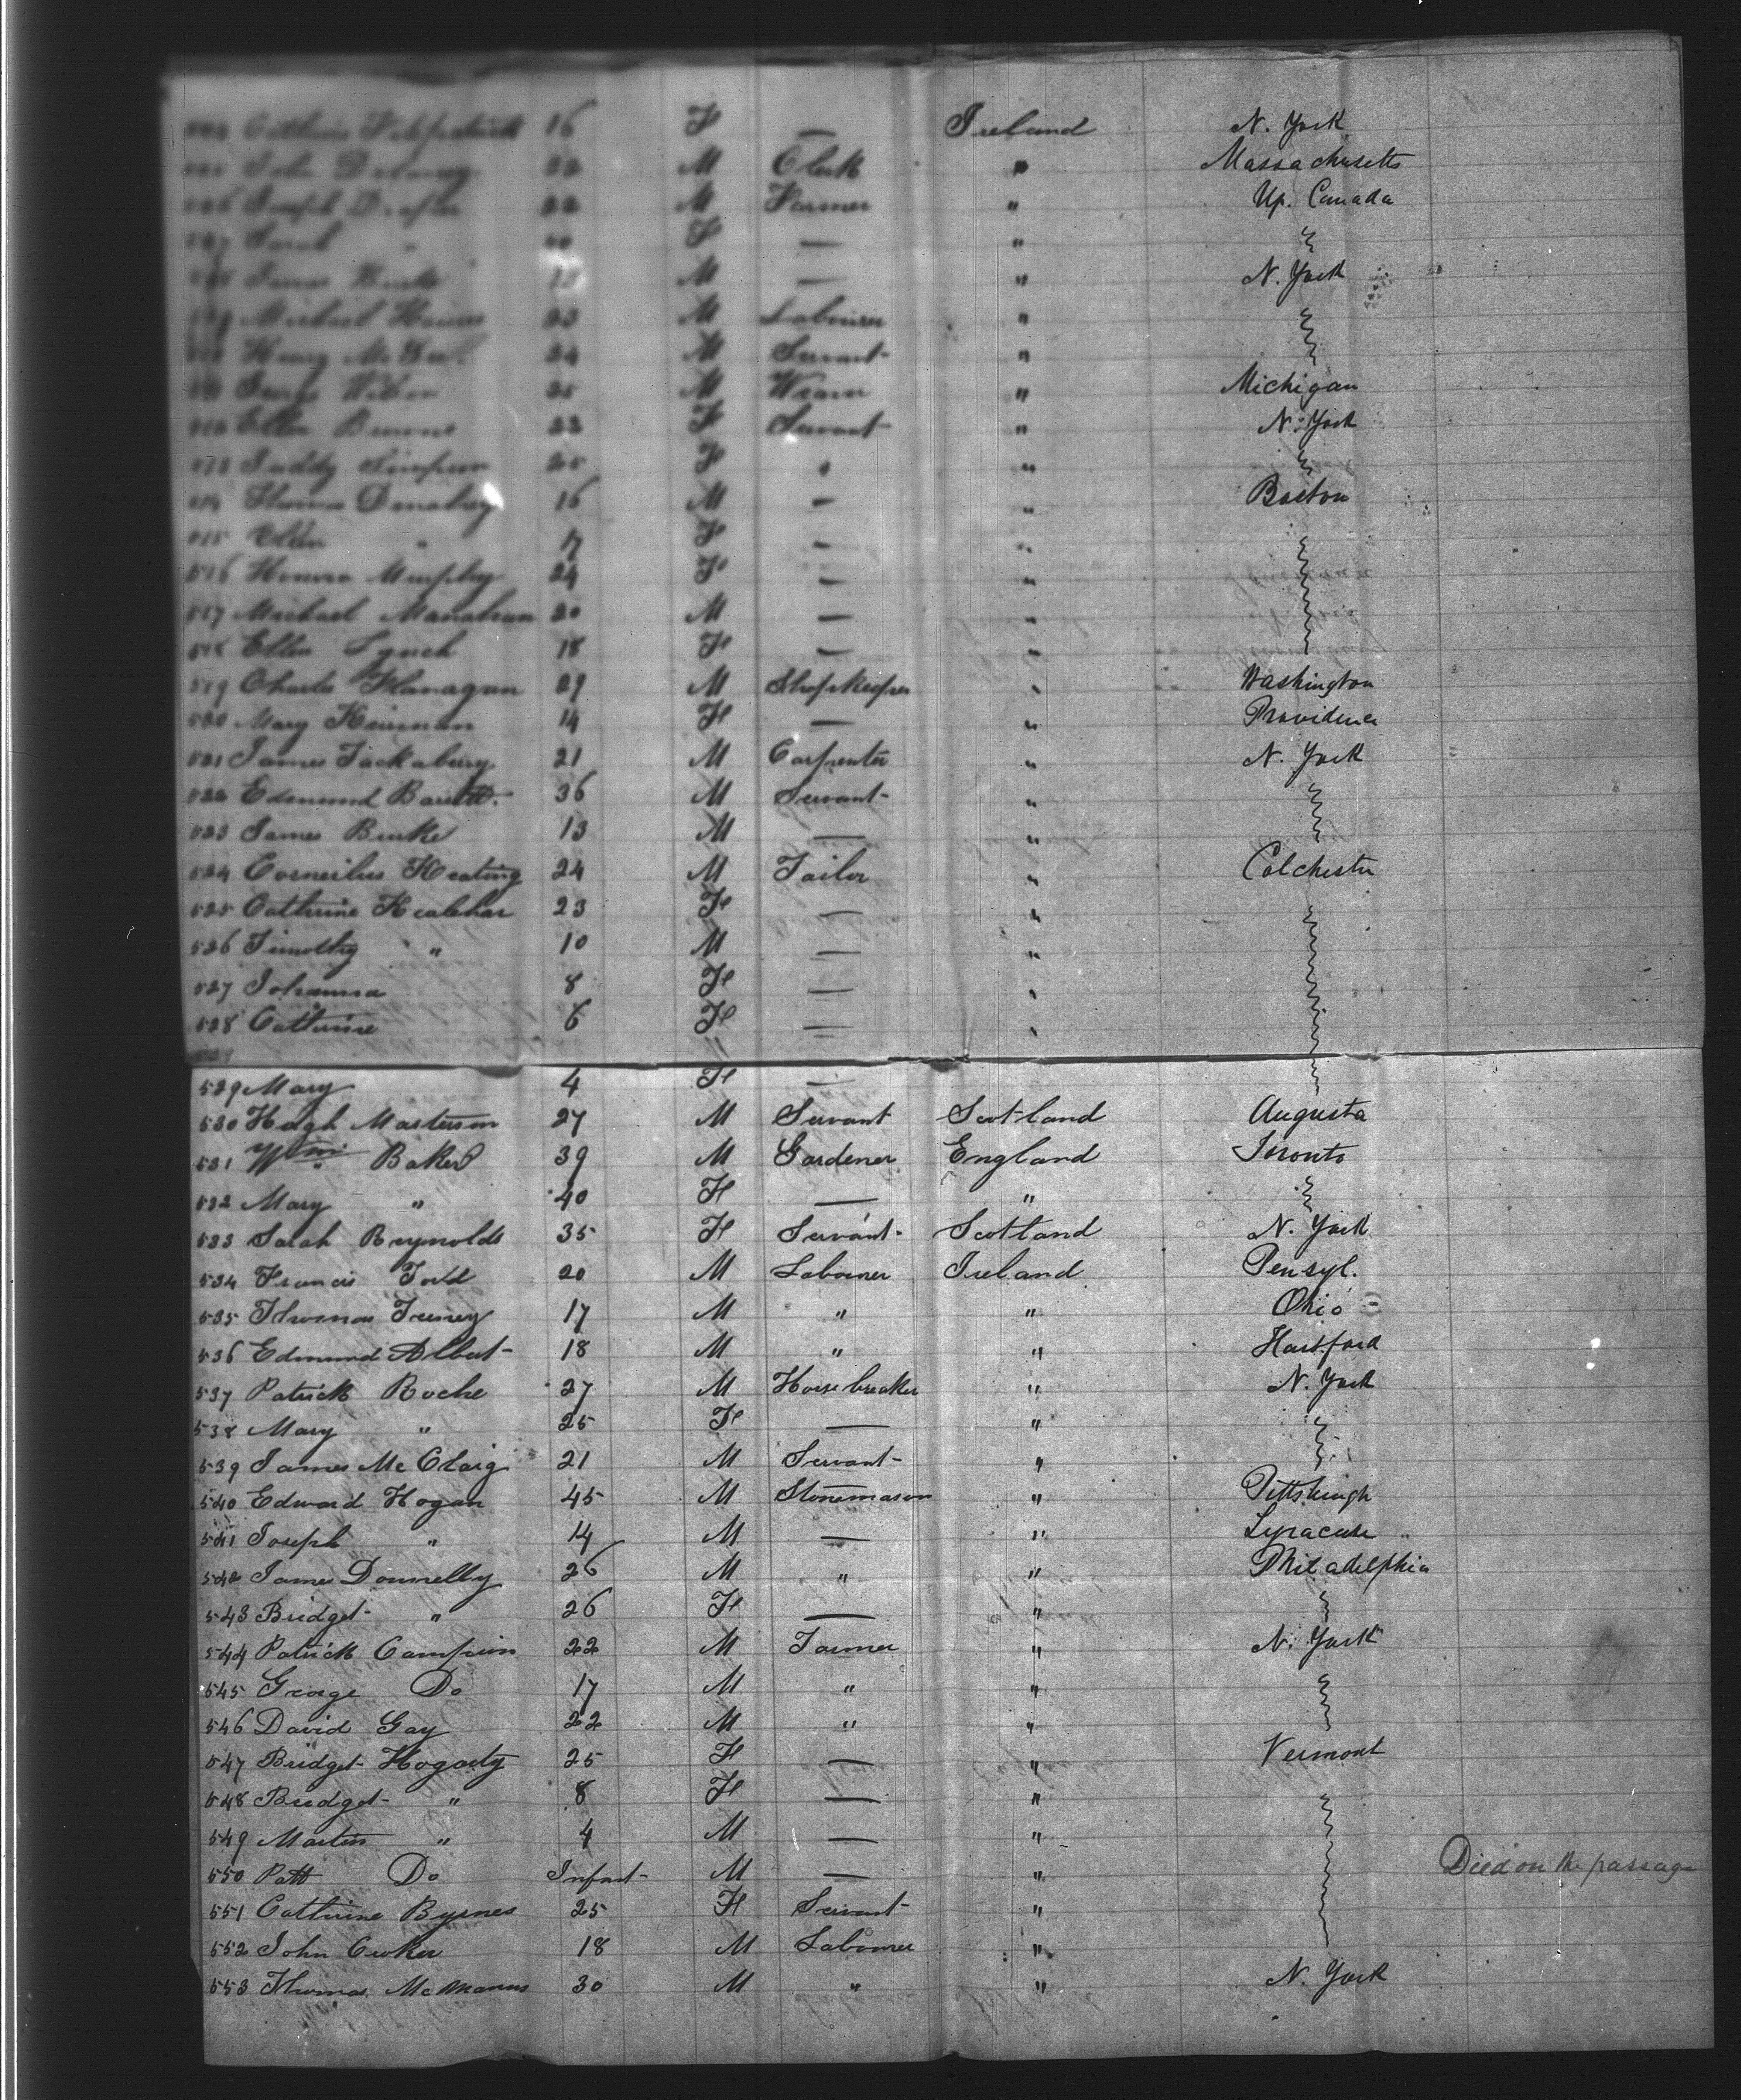 Catherine Fitzpatrick 16 F — Ireland N. York
John M Clerk " Massachusetts
Joseph 22 M Farmer " Up. Canada
507 Sarah " F — "
James M — " N. York
Michael 23 M Labourer "
Henry 24 M Servant "
George Wilson 25 M Weaver " Michigan
512 Ellen Browne 22 F Servant " N. York
513 Simpson 25 F " "
514 Thomas Denahey 16 M — " Boston
515 Ellen " 17 F — "
516 Honora Murphy 24 F — "
517 Michael Manahan 20 M — "
518 Ellen Lynch 18 F — "
519 Charles Flanagan 29 M Shopkeeper " Washington
520 Mary 14 F — " Providence
521 James Jackabury 21 M Carpenter " N. York
522 Edmund 36 M Servant "
523 James Burke 13 M — "
524 Corneilius Keating 24 M Tailor " Colchester
525 Catherine Kealehar 23 F — "
526 Timothy " 10 M — "
527 Johanna 8 F — "
528 Catherine 6 F — "
529 Mary 4 F —
530 Hugh Masterson 27 M Servant Scotland Augusta
531 Wm Baker 39 M Gardener England Toronto
532 Mary " 40 F — "
533 Sarah Reynolds 35 F Servant Scotland N. York
534 Francis Ford 20 M Labourer Ireland Pensyl.
535 Thomas 17 M " " Ohio
536 Edmund Albut 18 M " " Hartford
537 Patrick Roche 27 M Horsebreaker " N. York
538 Mary " 25 F — "
539 James Mc Claig 21 M Servant "
540 Edward Hogan 45 M Stonemason " Pittsburgh
541 Joseph " 14 M — " Syracuse
542 James Donnelly 26 M " " Philadelphia
543 Bridget " 26 F — "
544 Patrick Campion 22 M Farmer " N. York
545 George Do 17 M " "
546 David Gay 22 M " "
547 Bridget Hogarty 25 F — " Vermont
548 Bridget " 8 F — "
549 Martin " 4 M — "
550 Patt Do Infant M — " Died on the passage
551 Catherine Byrnes 25 F Servant "
552 John Croker 18 M Labourer "
553 Thomas McManus 30 M " " N. York